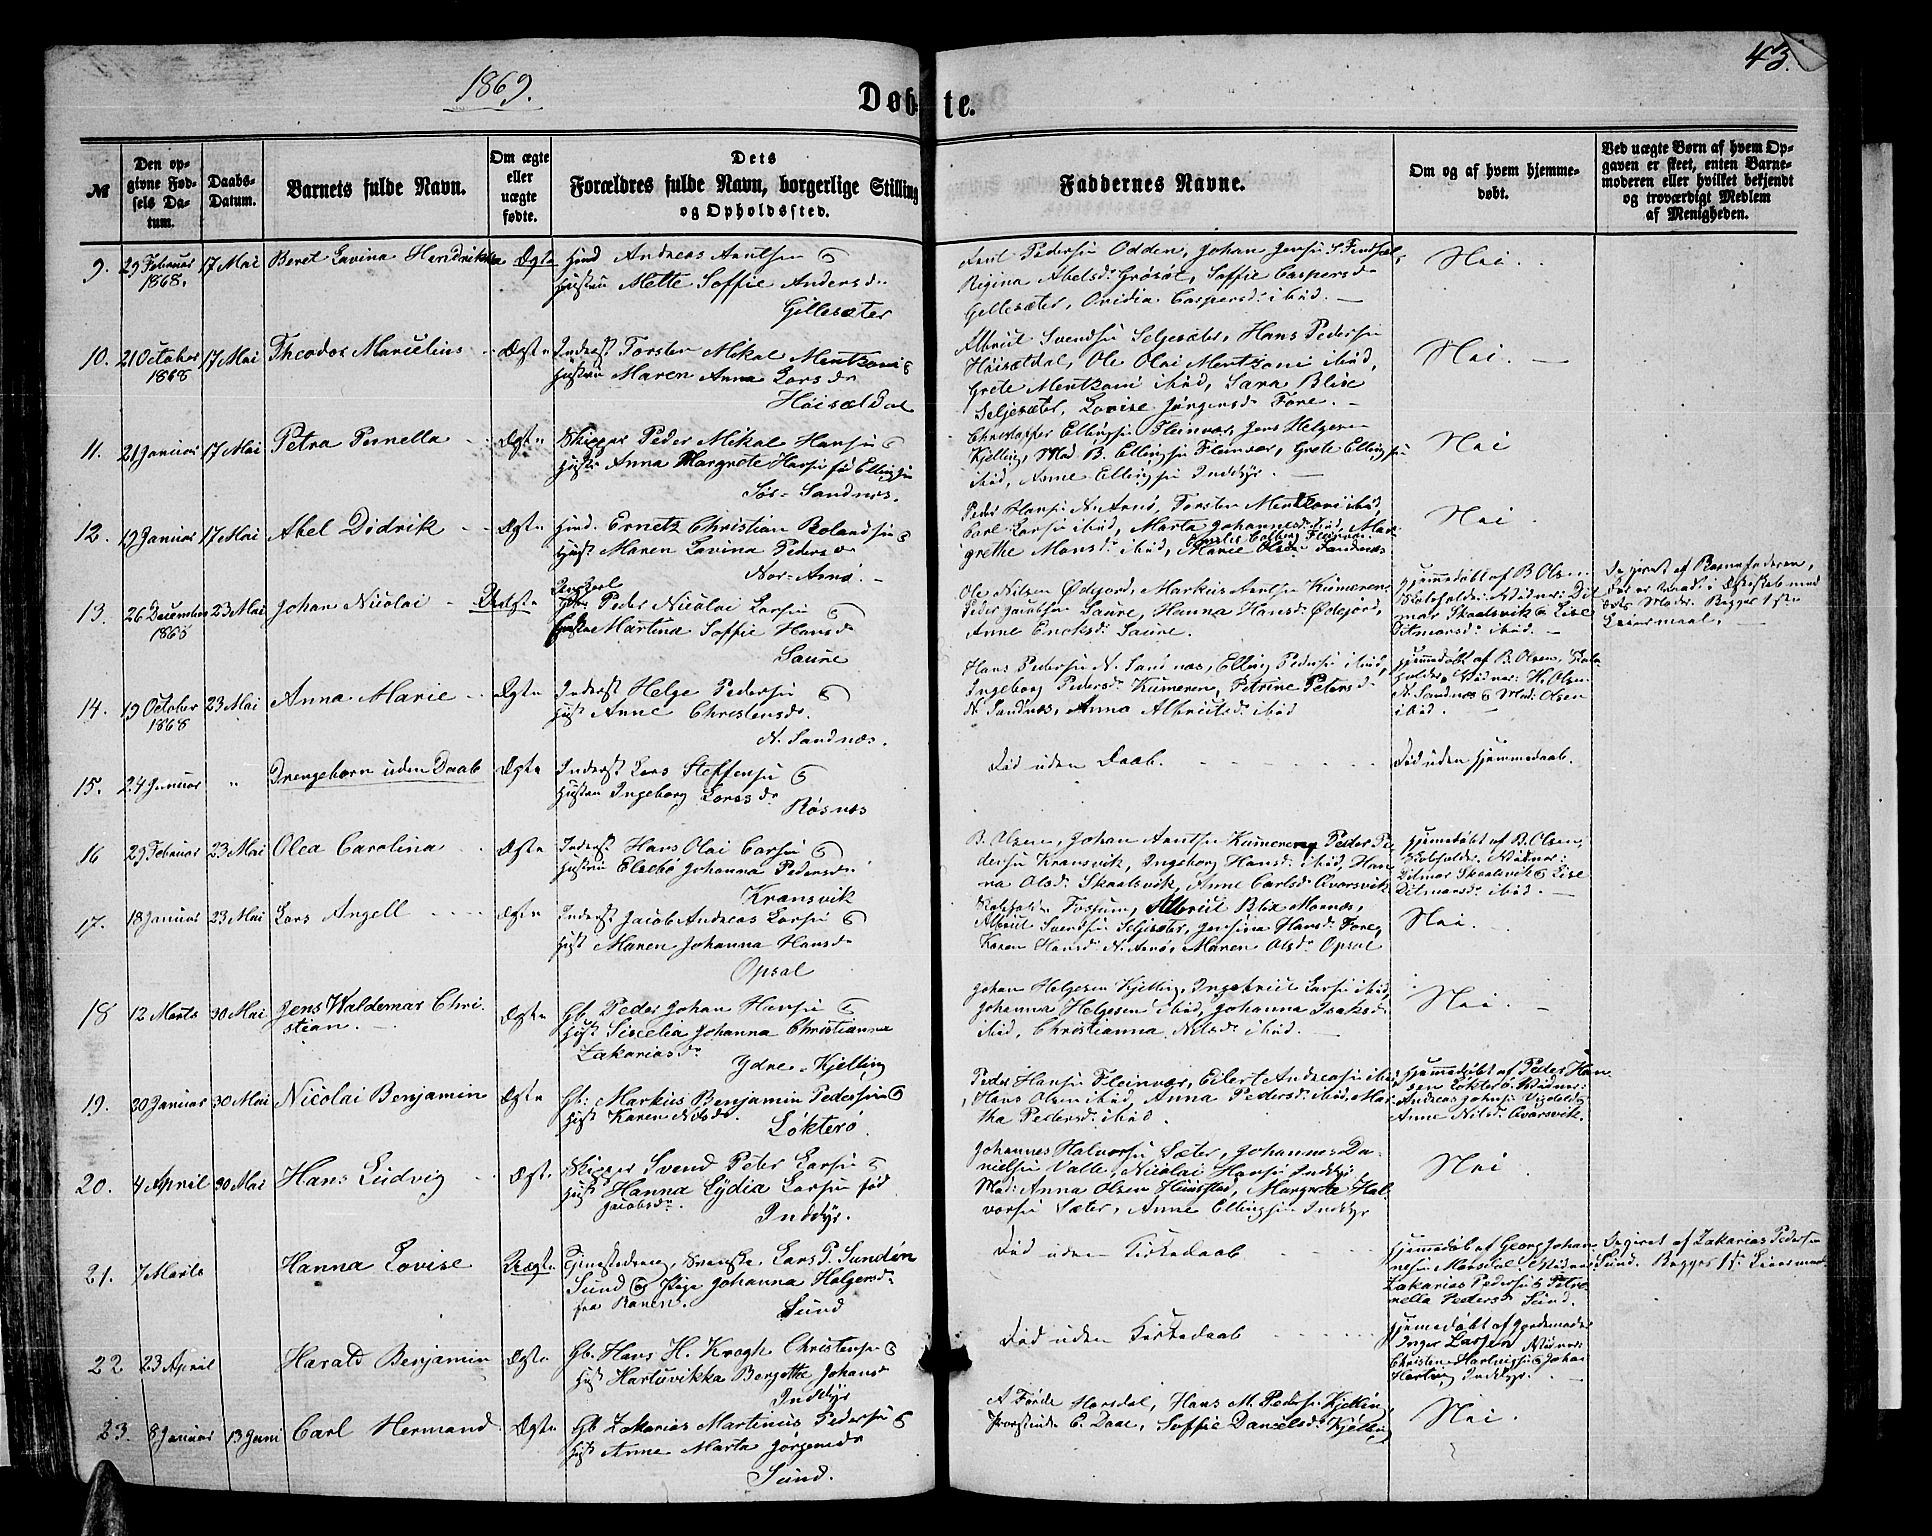 43.
1869.
Døbte.
№
Den op-
givne Fød-
sels Da-
tum.
Daabs-
Datum.
Barnets fulde Navn.
Om ægte
eller
uægte
fødte.
Dets
Forældres fulde Navn, borgerlige Stilling
og Opholdssted.
Faddernes Navne.
Om og af hvem hjemme-
døbt.
Ved uægte Børn af hvem Op-
gaven er skeet, enten Barne-
moderen eller hvilket bekjendt
og troværdigt Medlem
af Menigheden.
9. 29 Februar 17 Mai Beret Lavina Hendrikka Ægte Hmd Andreas Arntsen &
1868. Hustru Mette Soffie Andersdr
Gillesæter
Arnt Pedersen Odden, Johan Jensen
Regina Abelsdr Grøsøt, Soffie Caspersdr
Gillesæter, Ovidia Caspersdr ibid. —
Nei.
10. 21 October 17 Mai Theodor Marcelius Ægte Inderst Torsten Mikal Mentzoni &
1868 Hustru Maren Anna Larsdr
Høiseldal
Albrigt Svendsen Seljesæter, Hans Pedersen
Høiseldal, Ole Olai Mentzoni ibid,
Grete Mentzoni ibid, Sara Blixe
Seljesæter, Lovise Jørgensdr Fore. —
Nei. —
11. 21 Januar 17 Mai Petra Pernella Ægte Skipper Peder Mikal Hansen &
Hustru Anna Margrete Hansen fød Ellingsen
Sør-Sandnes.
Christoffer Ellingsen Fleinvær, Jens Helgesen
Kjelling, Mad B. Ellingsen Fleinvær, Grete Ellingsen
ibid, Anne Ellingsen Inddyr. —
Nei
12. 19 Januar 17 Mai Abel Didrik Ægte Hmd. Ernetz Christian Rolandsen &
Hust Maren Lavina Pedersdr
Nor-Arnø. —
Peder Hansen N. Arnø, Torsten Mentzoni ibid,
Carl Larsen ibid, Marta Johannesdr ibid, Mar-
grethe Monsdr ibid, Marie Olsen Sandnæs
Nei.
13. 26 December 23 Mai Johan Nicolai Uægte Ungkarl
1865 Peder Nicolai Larsen &
Martina Soffie Hansdr
Saure
Ole Nilsen Ødejord, Markus Arntsen Kumeren
Peder Jacobsen Saure, Hanna Hansdr Ødejord,
Anne Ericksdr Saure.
Hjemmedøbt af B. Olsen
Skoleholder. Vidner: Dit-
mar Skaalsvik & Lise
Ditmarsdr ibid. —
Angivet af Barnefaderen,
der er traadt i Ægteskab med
dets Moder. Begges 1ste
Leiermaal. —
14. 19 October 23 Mai Anna Marie Ægte Inderst Helge Pedersen &
1868 Hust Anne Christensdr.
N. Sandnæs.
Hans Pedersen N. Sandnæs, Elling Pedersen ibid,
Ingeborg Pedersdr Kumeren, Petrine Petersdr
N. Sandnæs, Anna Albrigtsdr ibid
Hjemmedøbt af B. Olsen, Skole-
holder, Vidner: H. Olsen
N. Sandnæs & Mad: Olsen
ibid.
15. 24 Januar " Drengebarn uden Daab Ægte Inderst Lars Steffensen &
Hustru Ingeborg Larsdr
Røsnæs
Død uden Daab.
Død uden Hjemmedaab.
16 29 Februar 23 Mai Olea Carolina Ægte Inderst Hans Olai Larsen &
Hustru Elsebe Johanna Pedersdr
Kransvik
B. Olsen, Johan Arntsen Kumeren, Peder Pe-
dersen Kransvik, Ingeborg Hansdr ibid, Han-
na Olsdr Skaalsvik, Anne Carlsdr Qvarsvik
Hjemmedøbt af B. Olsen,
Skoleholder. Vidner:
Ditmar Skaalsvik & Lise
Ditmarsdr ibid. —
17. 18 Januar 23 Mai Lars Angell Ægte Inderst Jacob Andreas Larsen &
Hust Maren Johanna Hansdr
Opsal
Fossum, Albrigt Blix Mornæs,
Albrigt Svendsen Seljesæter, Jensina Hansdr Fore,
Karen Hansdr N. Arnø, Maren Olsdr Opsal
Nei.
18 12 Marts 30 Mai Jens Waldemar Chri-
stian. Ægte Gb. Peder Johan Hansen &
Hust Siscelia Johanna Christianna
Zakariasdr
Ydre-Kjelling
Johan Helgesen Kjelling, Ingebrigt Larsen ibid,
Johanna Helgesen ibid, Johanna Isaksdr
ibid, Christianna Nilsdr ibid. —
Nei. —
19. 30 Januar 30 Mai Nicolai Benjamin Ægte Gb. Markus Benjamin Pedersen &
Hust Karen Nilsdr.
Løkterø.
Peder Hansen Fleinvær, Eilert Andreasen ibid
, Hans Olsen ibid, Anna Pedersdr ibid, Mar-
tha Pedersdr ibid.
Hjemmedøbt af Peder Han-
sen Løkterø. Vidner:
Andreas Johnsen &
Anne Nilsdr Qvarsvik.
20. 4 April 30 Mai Hans Ludvig Ægte Skipper Svend Peter Larsen &
Hust Hanna Lydia Larsen fød
Jacobsdr.
Inddyr.
Johannes Halvorsen Sæter, Johannes Da-
nielsen Valle, Nicolai Hansen Inddyr,
Mad: Anna Olsen Heimstad, Margrete Hal-
vorsen Sæter, Anne Ellingsen Inddyr
Nei.
21. 7 Marts Hanna Lovise Uægte Tjenestedreng, Svenske, Lars P. Sundin
Sund & Pige Johanna Holgersdr
fra Ranen.
Sund
Død uden Kirkedaab
Hjemmedøbt af Georg Johan-
nesen Morsdal Vidner
Zakarias Pedersen & Petro-
nella Pedersdr Sund.
Angivet af Zakarias Pedersen
Sund. Begges 1ste Leiermaal.
22 23 April Harald Benjamin Ægte Gb. Hans H. Krogh Christensen &
Hust Hartuvikka Bergitte Johansdr
Inddyr
Død uden Kirkedaab
Hjemmedøbt af Jordemoder
Inger Larsen Vidner
Christen Hartvigsen & Johan
Hartvig Inddyr. —
23. 8 Januar 13 Juni Carl Hermand Ægte Gb Zakarias Martinus Pedersen &
Hust Anne Marta Jørgensdr
Sund.
A. Horsdal, Hans M. Peders. Kjelling,
Provstinde C. Daae, Soffie Danielsdr Kjelling
Nei.